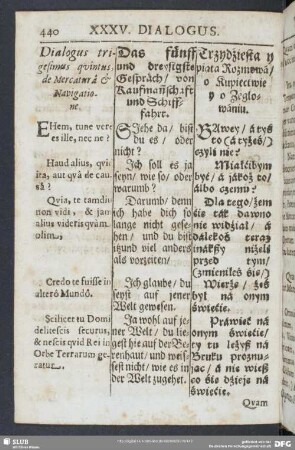 440 XXXV. DIALOGUS.
Dialogus tri-
gesimus quintus,
de Mercaturâ &
Navigatio-
ne.
EHem, tune vere
es ille, nec ne?
Haud alius, qui
ista, aut quâ de cau-
sâ?
Quia, te tamdiu
non vidi, & jam
alius videris quàm
olim.
Credo te fuisse in
alterô Mundô.
Scilicet tu Domi
delitescis securus,
& nescis quid Rei in
Orbe Terrarum ge-
ratur.
Das fünff
und dreysigste
Gespräch/ von
Kauffmañschaft
und Schiff-
fahrt.
SIehe da/ bist
du es/ oder
nicht?
Ich soll es ja
seyn/ wie so/ oder
warumb?
Darumb/ denn
ich habe dich so
lange nicht gese-
hen/ und du bist
itzund viel anders
als vorzeiten/
Ich glaube/ du
seyst auf jener
Welt gewesen.
Ja wohl auf je-
ner Welt/ du lie-
gest hie auf der Be-
renhaut/ und weis-
sest nicht/ wie es in
der Welt zugehet.
Trzydziesta y
piąta Rozmowá/
o Kupiectwie
y o Żeglo-
wániu.
czyli nie?
Miałćibym
być/ á jákoż to/
álbo czemu?
Dla tego/ żem
ćię ták dawno
nie widział/ á
dálekoś teraz
inákszy niżeli
przed tym/
Wierzę/ żeś
był ná onym
świećie.
Prawieć ná
onym świećie/
ty tu leżysz ná
Bruku proznu-
jąc/ á nie wiesz
co się dzieje ná
świećie.
Quam
SLUB
DFG